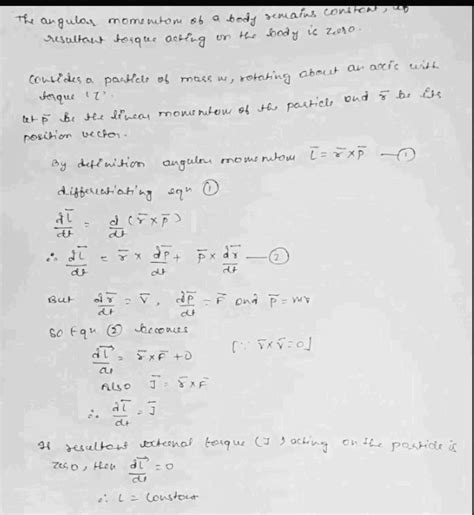 The angular momentum of a body remains constant, if
resultant torque acting on the body is zero.
Consider a particle of mass m, rotating about an axis with
torque 'τ'.
let p̄ be the linear momentum of the particle and r̄ be its
position vector.
By definition angular momentum l̄ = r̄ × p̄ — ①
differentiating eqn ①
dl̄/dt = d/dt (r̄ × p̄)
∴ dl̄/dt = r̄ × dp̄/dt + p̄ × dr̄/dt — ②
But dr̄/dt = v̄, dp̄/dt = F̄ and p̄ = mv
So Eqn ② becomes
dl̄/dt = r̄ × F̄ + 0 [∵ v̄ × v̄ = 0]
Also τ̄ = r̄ × F̄
∴ dl̄/dt = τ̄
If resultant external torque (τ) acting on the particle is
zero, then dl̄/dt = 0
∴ L = constant